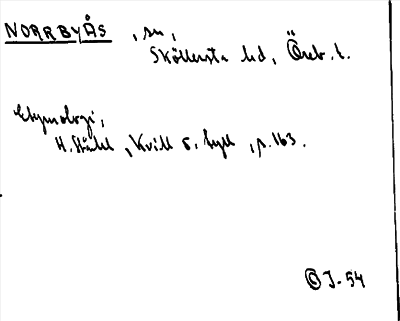 NORRBYÅS, sn,
Sköllersta hd, Öreb. l.
Etymologi,
H. Ståhl, Kvill o. tyll, p. 163.
J-54